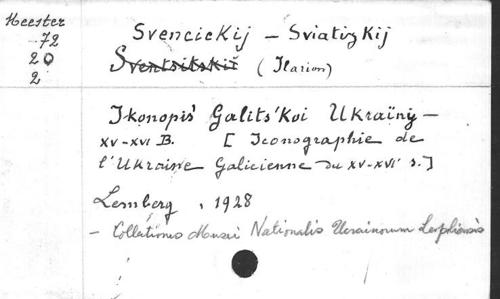 Heester
-72
20
2
Svencickij - Sviatizkij
Sventsitskiï (Ilarion)
Ikonopis' Galits'Koi Ukraïny -
XV-XVI B. [ Iconographie de
l'Ukraine Galicienne du XV-XVI s.]
Lemberg, 1928
- Collationes Musei Nationalis Ucrainorum Leopoliensis